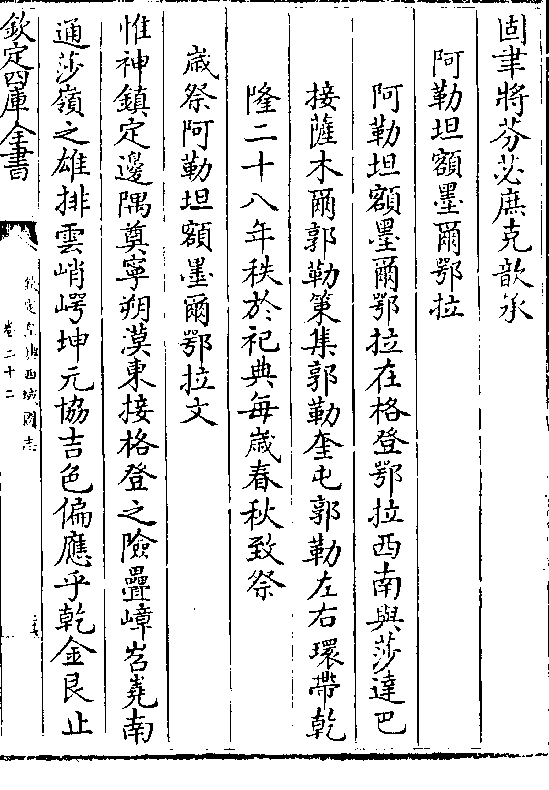 固聿將芬苾庶克歆承
阿勒坦額墨爾鄂拉
阿勒坦額墨爾鄂拉在格登鄂拉西南與莎達巴
接薩木爾郭勒策集郭勒奎屯郭勒左右環帶乾
隆二十八年秩於祀典每歲春秋致祭
歲祭阿勒坦額墨爾鄂拉文
惟神鎮定邊隅奠寧朔漠東接格登之險疊嶂岧嶤南
通莎嶺之雄排雲峭崿坤元協吉色偏應乎乾金艮止
欽定四庫全書
欽定皇輿西域圖志
卷二十二